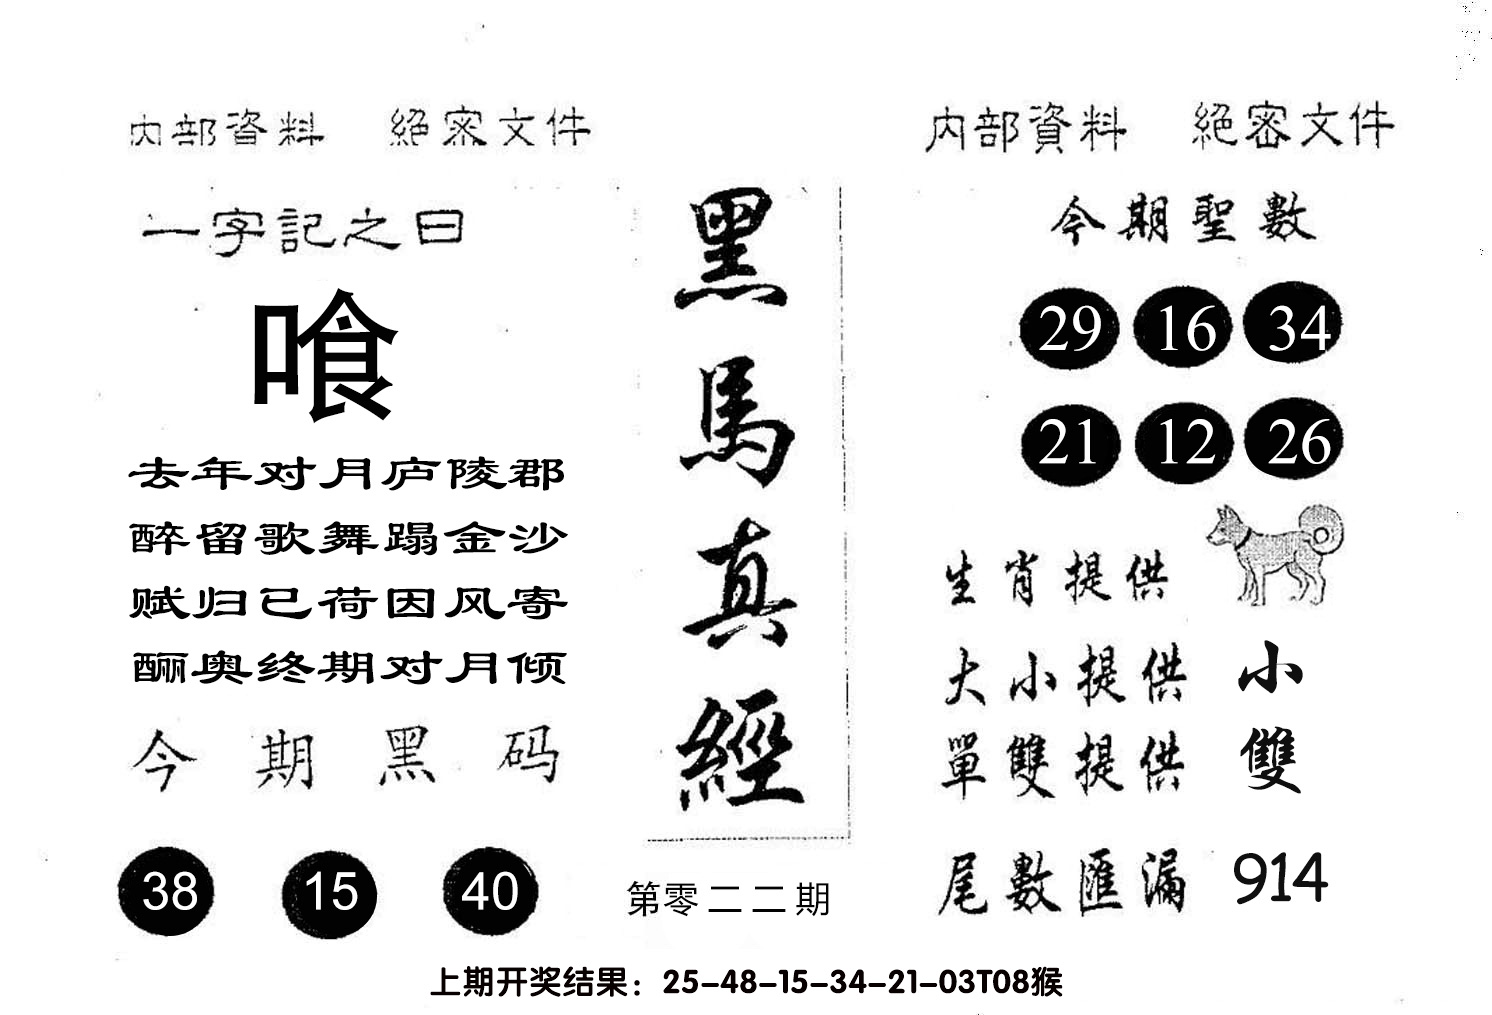 内部資料 絕密文件
一字記之曰
喰
去年对月庐陵郡
醉留歌舞蹋金沙
赋归已荷因风寄
酾奥终期对月倾
今期黑码
38 15 40
黑馬真經
第零二二期
内部資料 絕密文件
今期聖數
29 16 34
21 12 26
生肖提供
大小提供 小
單雙提供 雙
尾數匯漏 914
上期开奖结果：25-48-15-34-21-03T08猴